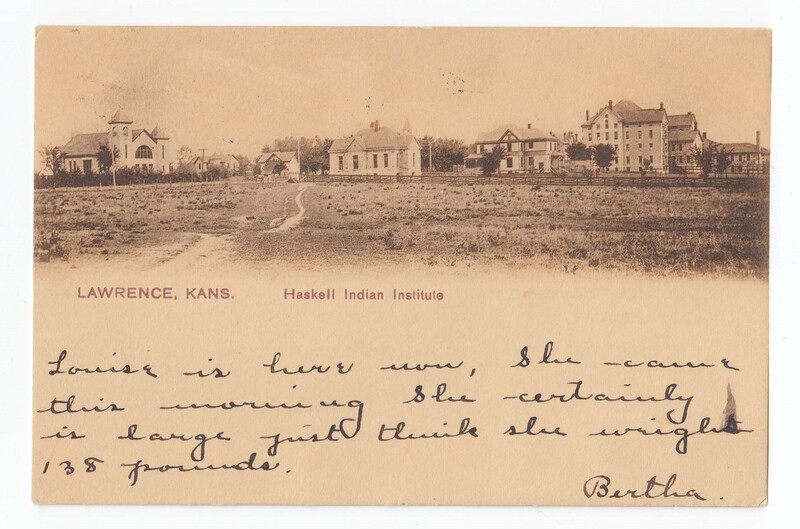 LAWRENCE, KANS. Haskell Indian Institute
Louise is here now, She came
this morning She certainly
is large just think she wright
138 pounds.
Bertha.